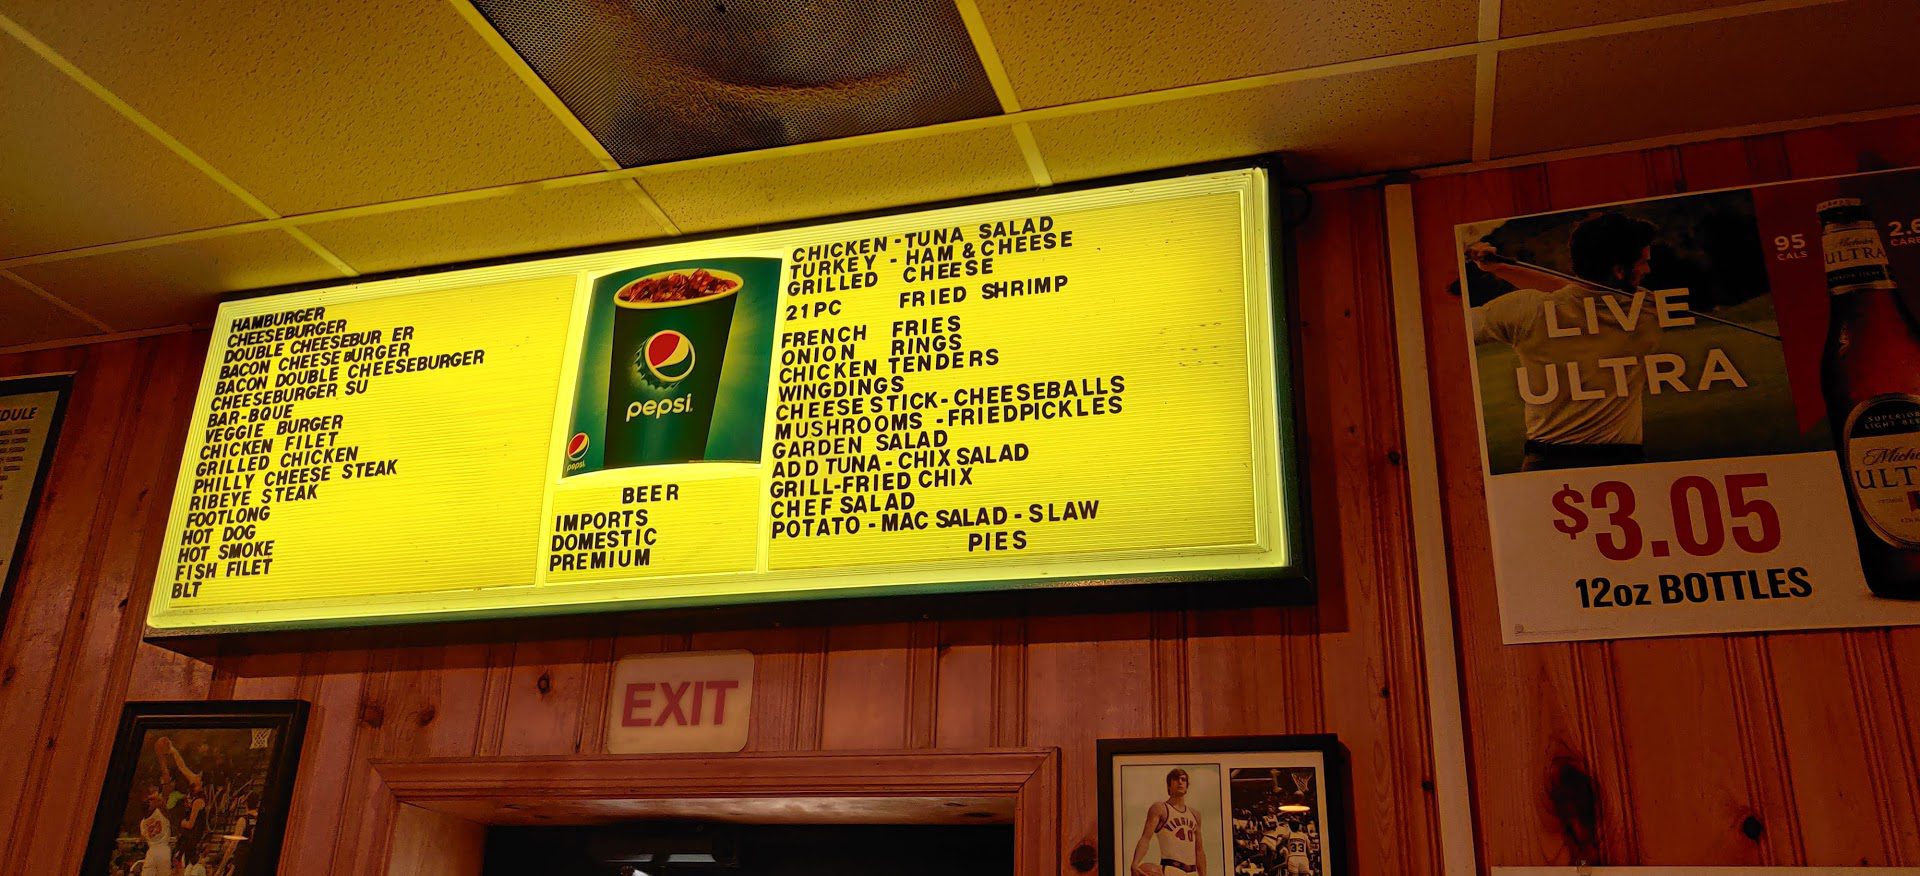 HAMBURGER
CHEESEBURGER
DOUBLE CHEESEBUR ER
BACON CHEESEBURGER
BACON DOUBLE CHEESEBURGER
CHEESEBURGER SU
BAR-BQUE
VEGGIE BURGER
CHICKEN FILET
GRILLED CHICKEN
PHILLY CHEESE STEAK
RIBEYE STEAK
FOOTLONG
HOT DOG
HOT SMOKE
FISH FILET
BLT
pepsi
pepsi
BEER
IMPORTS
DOMESTIC
PREMIUM
CHICKEN - TUNA SALAD
TURKEY - HAM & CHEESE
GRILLED CHEESE
21 PC FRIED SHRIMP
FRENCH FRIES
ONION RINGS
CHICKEN TENDERS
WINGDINGS
CHEESE STICK - CHEESEBALLS
MUSHROOMS - FRIEDPICKLES
GARDEN SALAD
ADD TUNA - CHIX SALAD
GRILL-FRIED CHIX
CHEF SALAD
POTATO - MAC SALAD - SLAW
PIES
EXIT
LIVE
ULTRA
95
CALS
2.6
CAR
ULTRA
SUPERIOR
LIGHT BEE
Miche
ULT
$3.05
12oz BOTTLES
DULE
40
33